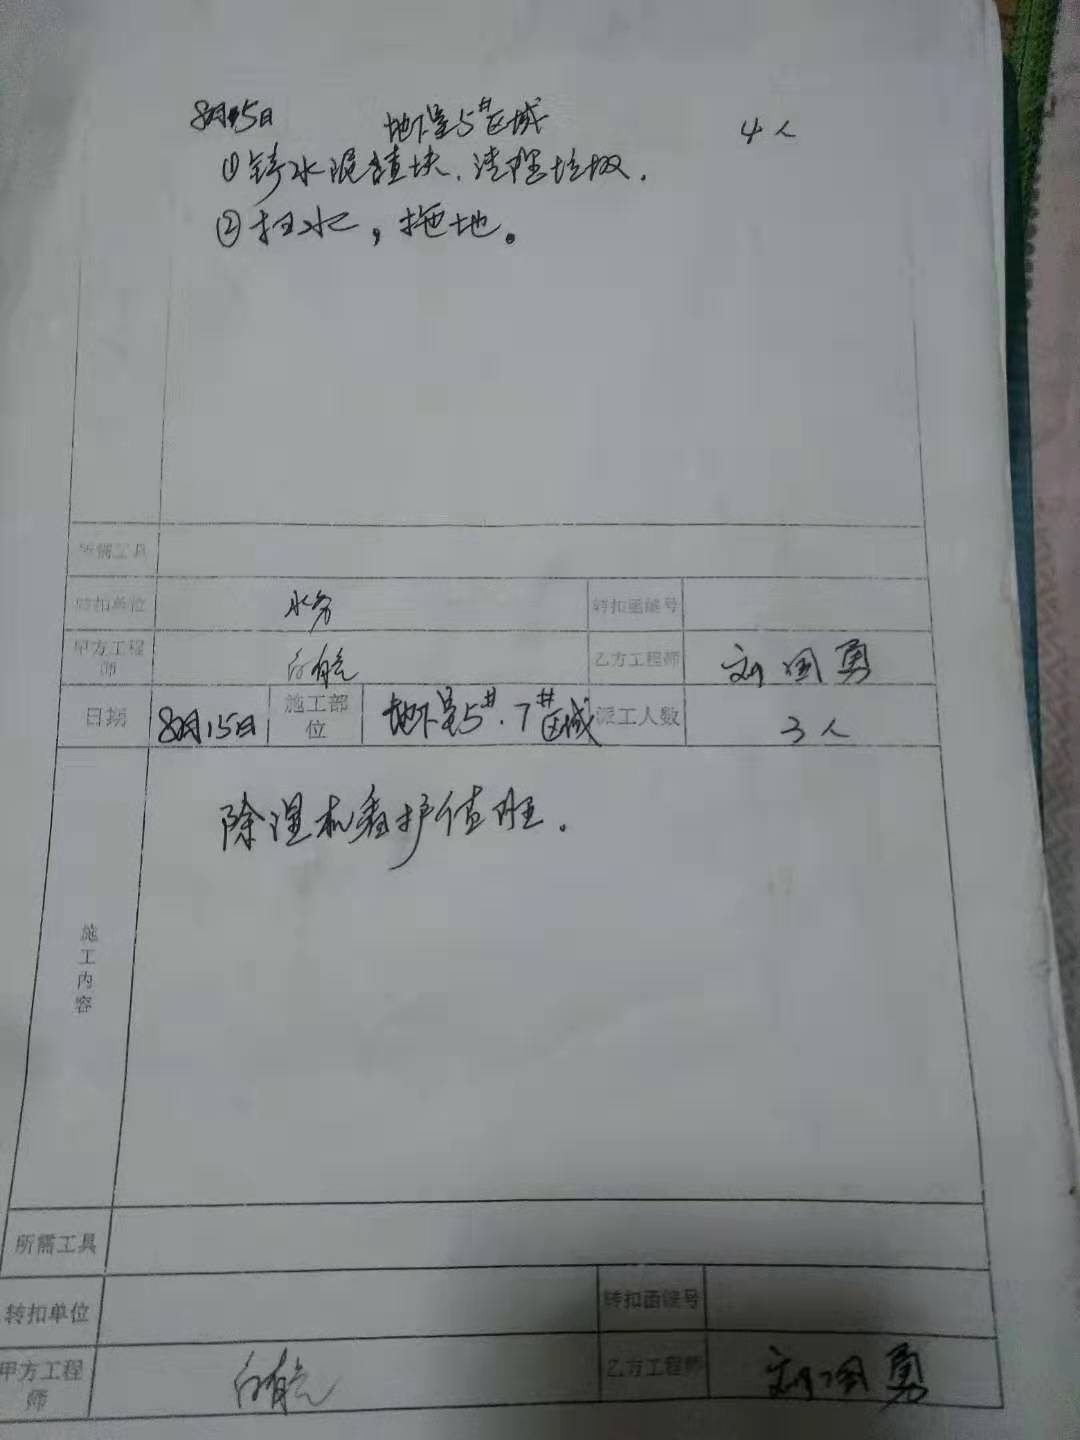 8月15日 地下室5#区域 4人
①铲水泥渣块、清理垃圾.
②扫水，拖地。
所需工具
转扣单位 水务 转扣函编号
甲方工程师 乙方工程师 刘国勇
日期 8月15日 施工部位 地下室5#.7#区域 派工人数 3人
施工内容 除湿机看护值班.
所需工具
转扣单位 转扣函编号
甲方工程师 乙方工程师 刘国勇